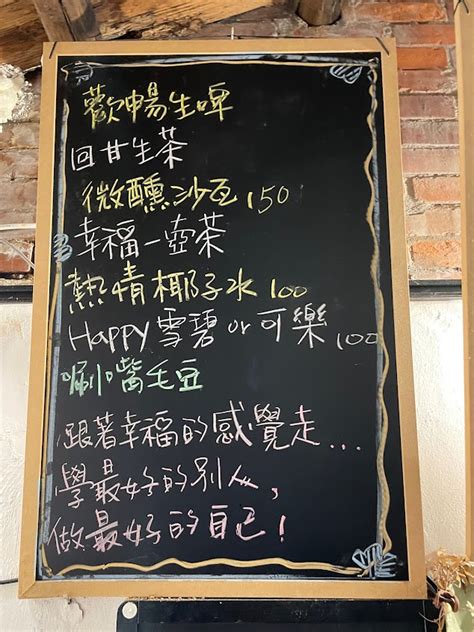 歡暢生啤
回甘生茶
微醺沙瓦 150
幸福一壺茶
熱情椰子水 100
Happy 雪碧 or 可樂 100
涮嘴毛豆
跟著幸福的感覺走...
學最好的別人,
做最好的自己!